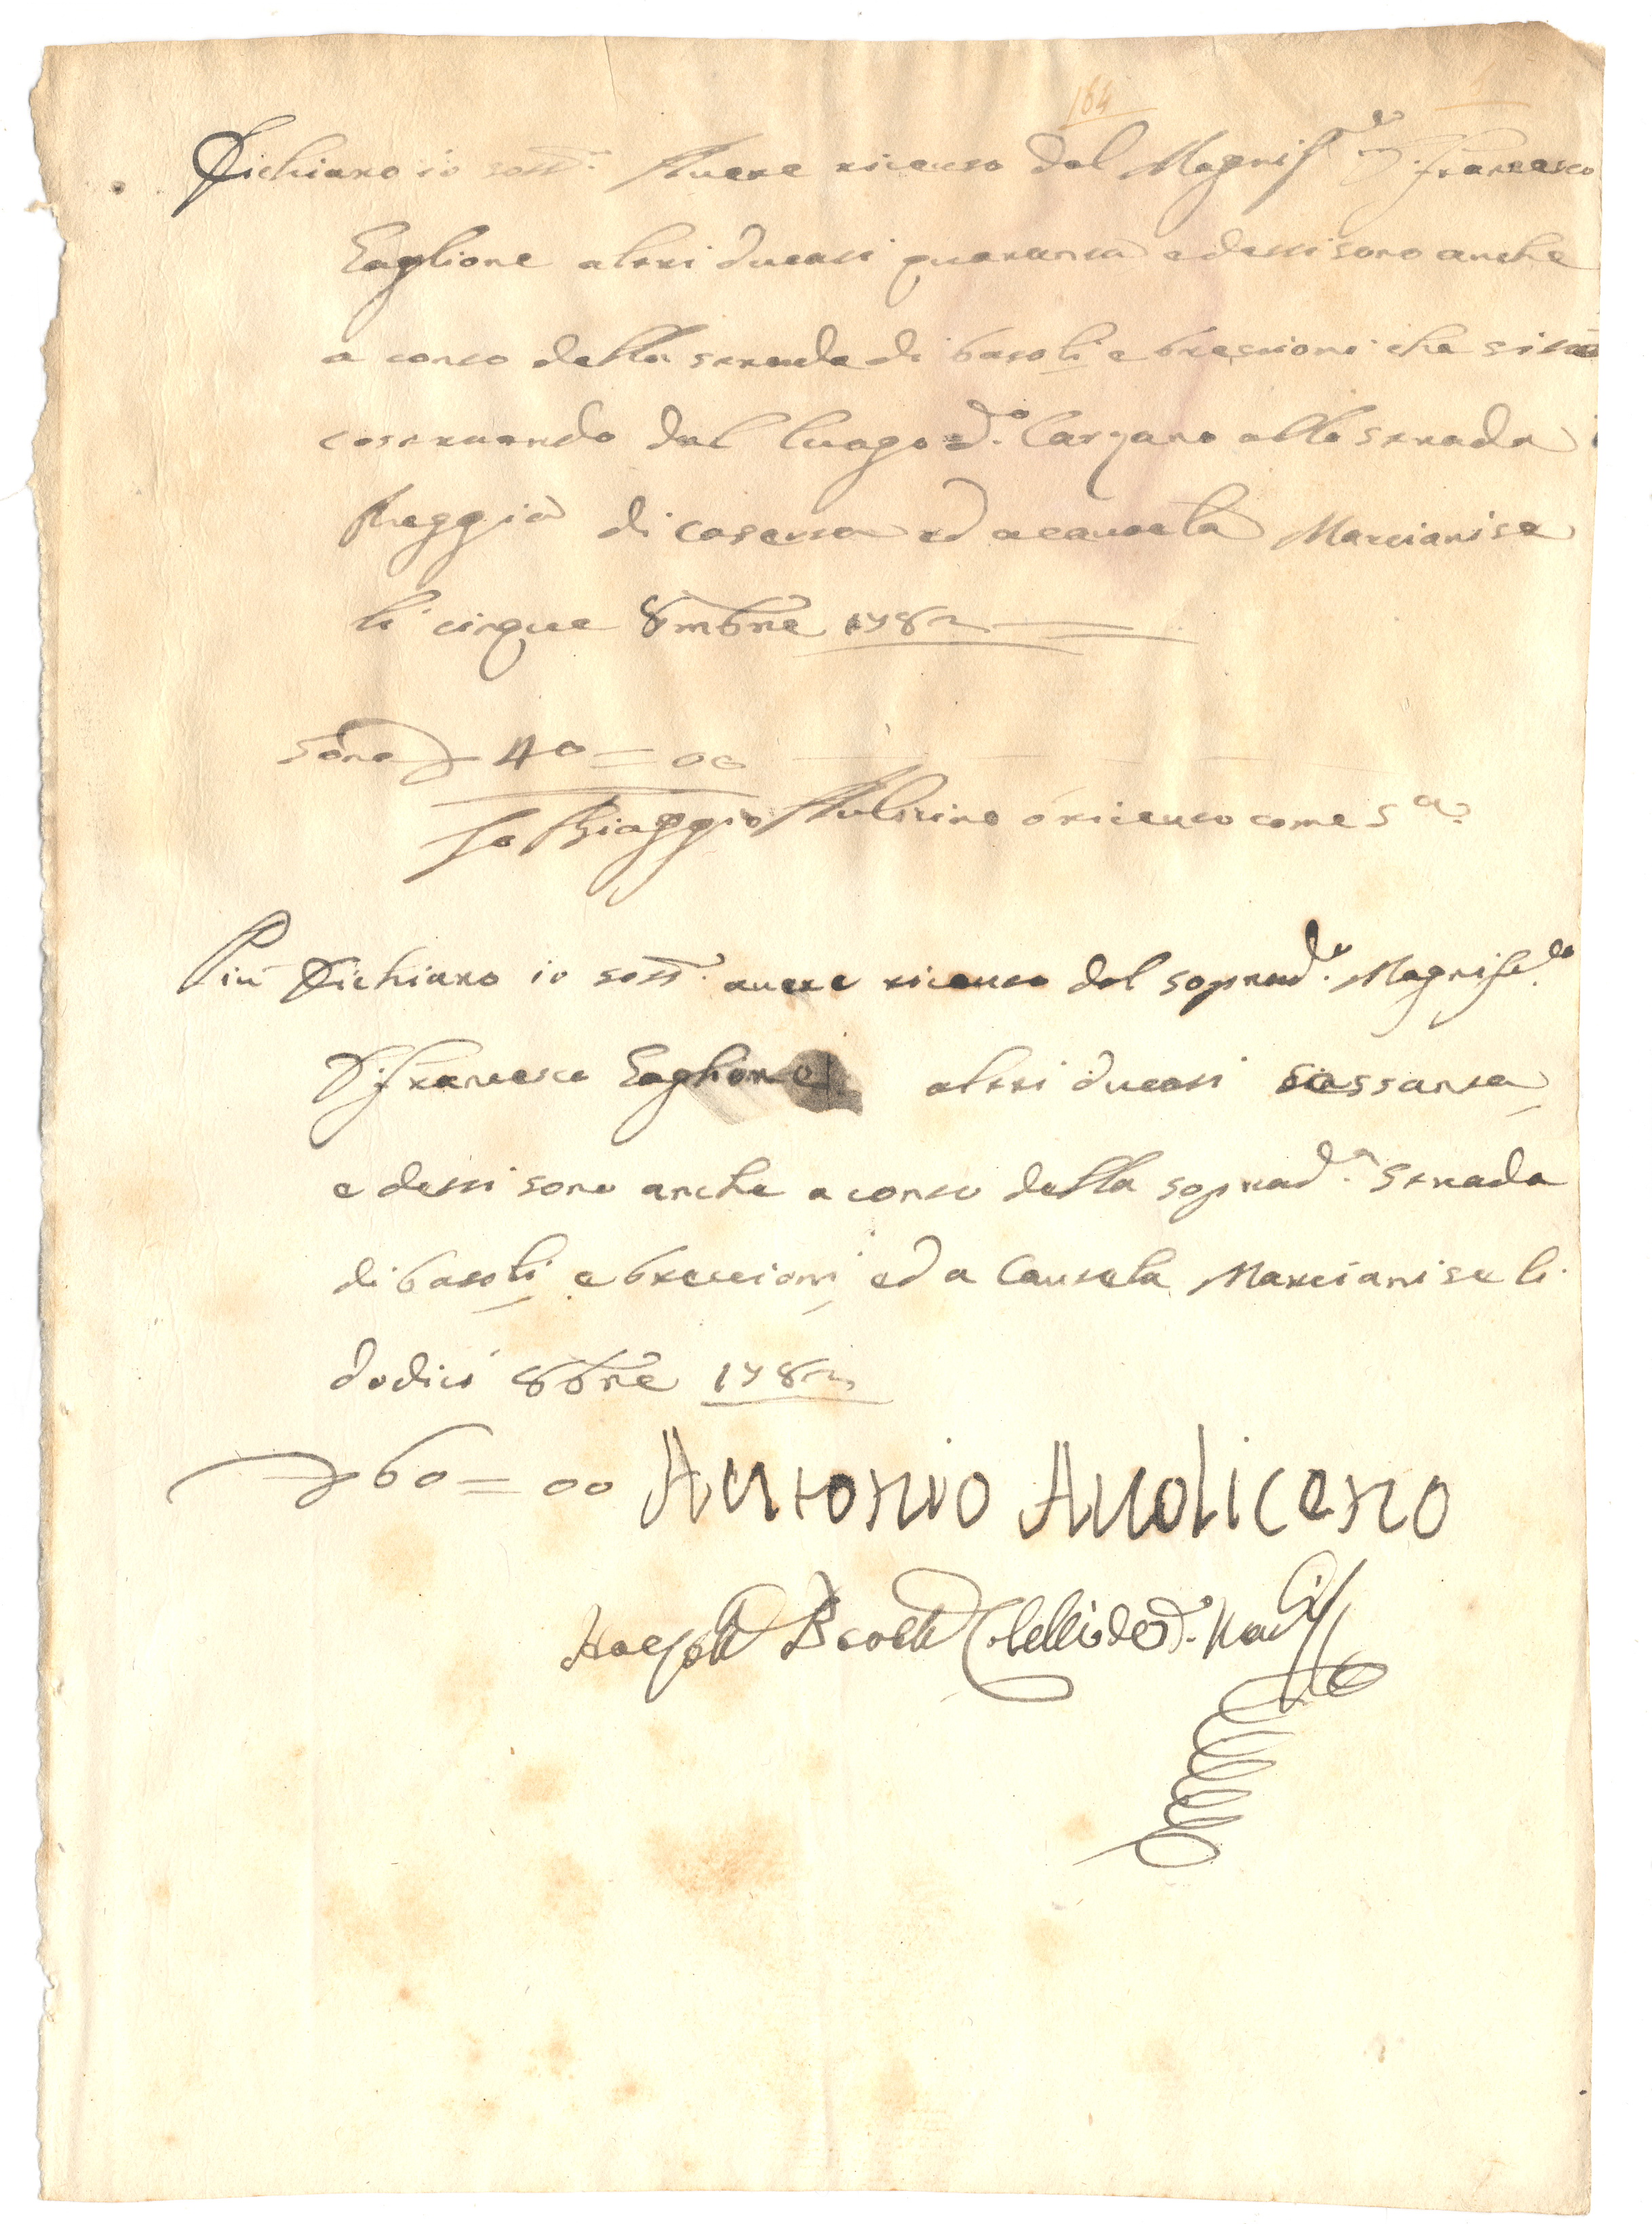 164
Dichiaro io sott.o Avere riceuto dal Magnif.co D. Francesco
Taglione altri ducati quaranta e detti sono anche
a conto della strada di basoli e breccioni che si sta
costruendo dal luogo d.o Carzano alla strada
Reggia di Caserta ed a cautela Marcianise
li cinque 8mbre 1782
sono D 40=00
Io Biaggio Aulicino ò riceuto come s.a
Più Dichiaro io sott.o auere riceuto dal soprad.o Magnifi.co
D. Francesco Taglione altri ducati sessanta
e detti sono anche a conto della soprad.a strada
di basoli e breccioni ed a Cautela Marcianise li
dodici 8bre 1782
D 60=00 Antonio Auoliceno